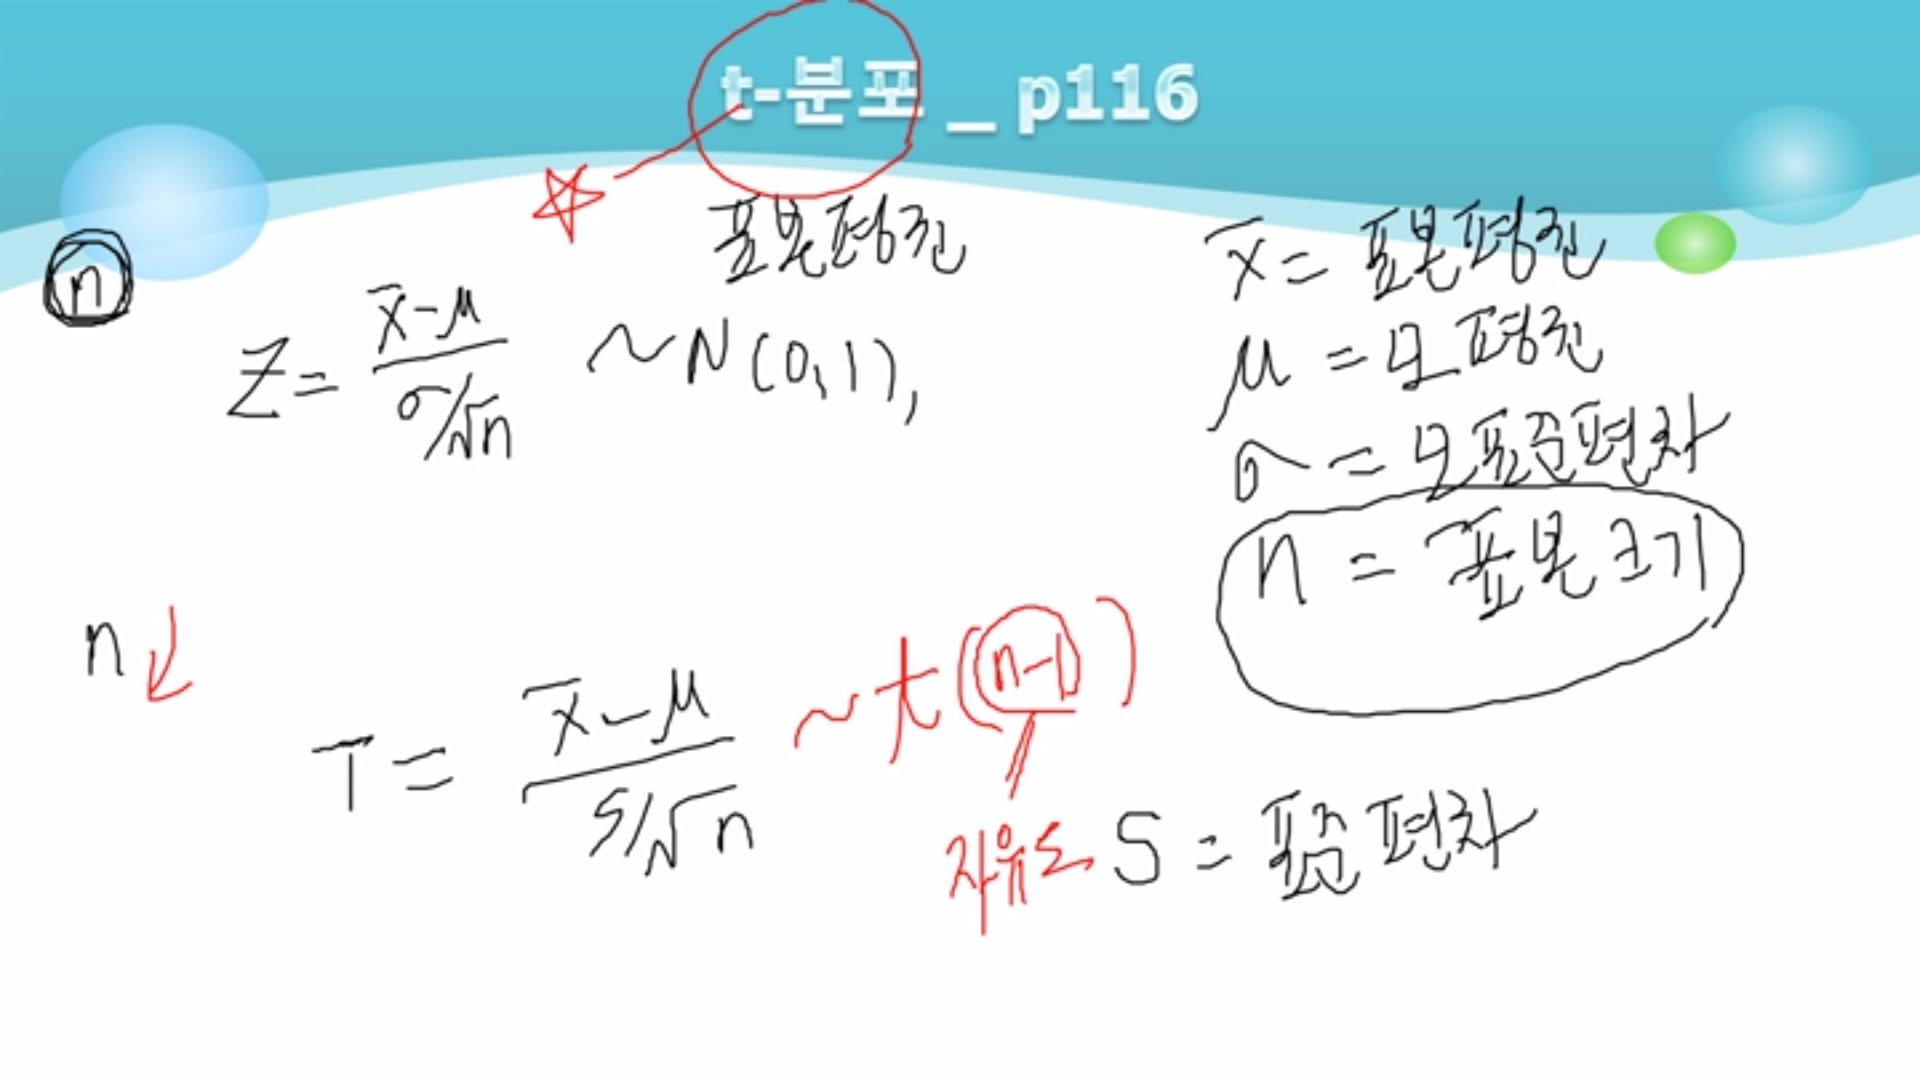 t-분포 _ p116
표본평균
n
Z = x̄-μ / σ/√n ~N(0,1),
x̄ = 표본평균
μ = 모평균
σ = 모표준편차
n = 표본크기
n↓
T = x̄-μ / S/√n ~t(n-1)
자유도
S = 표준편차